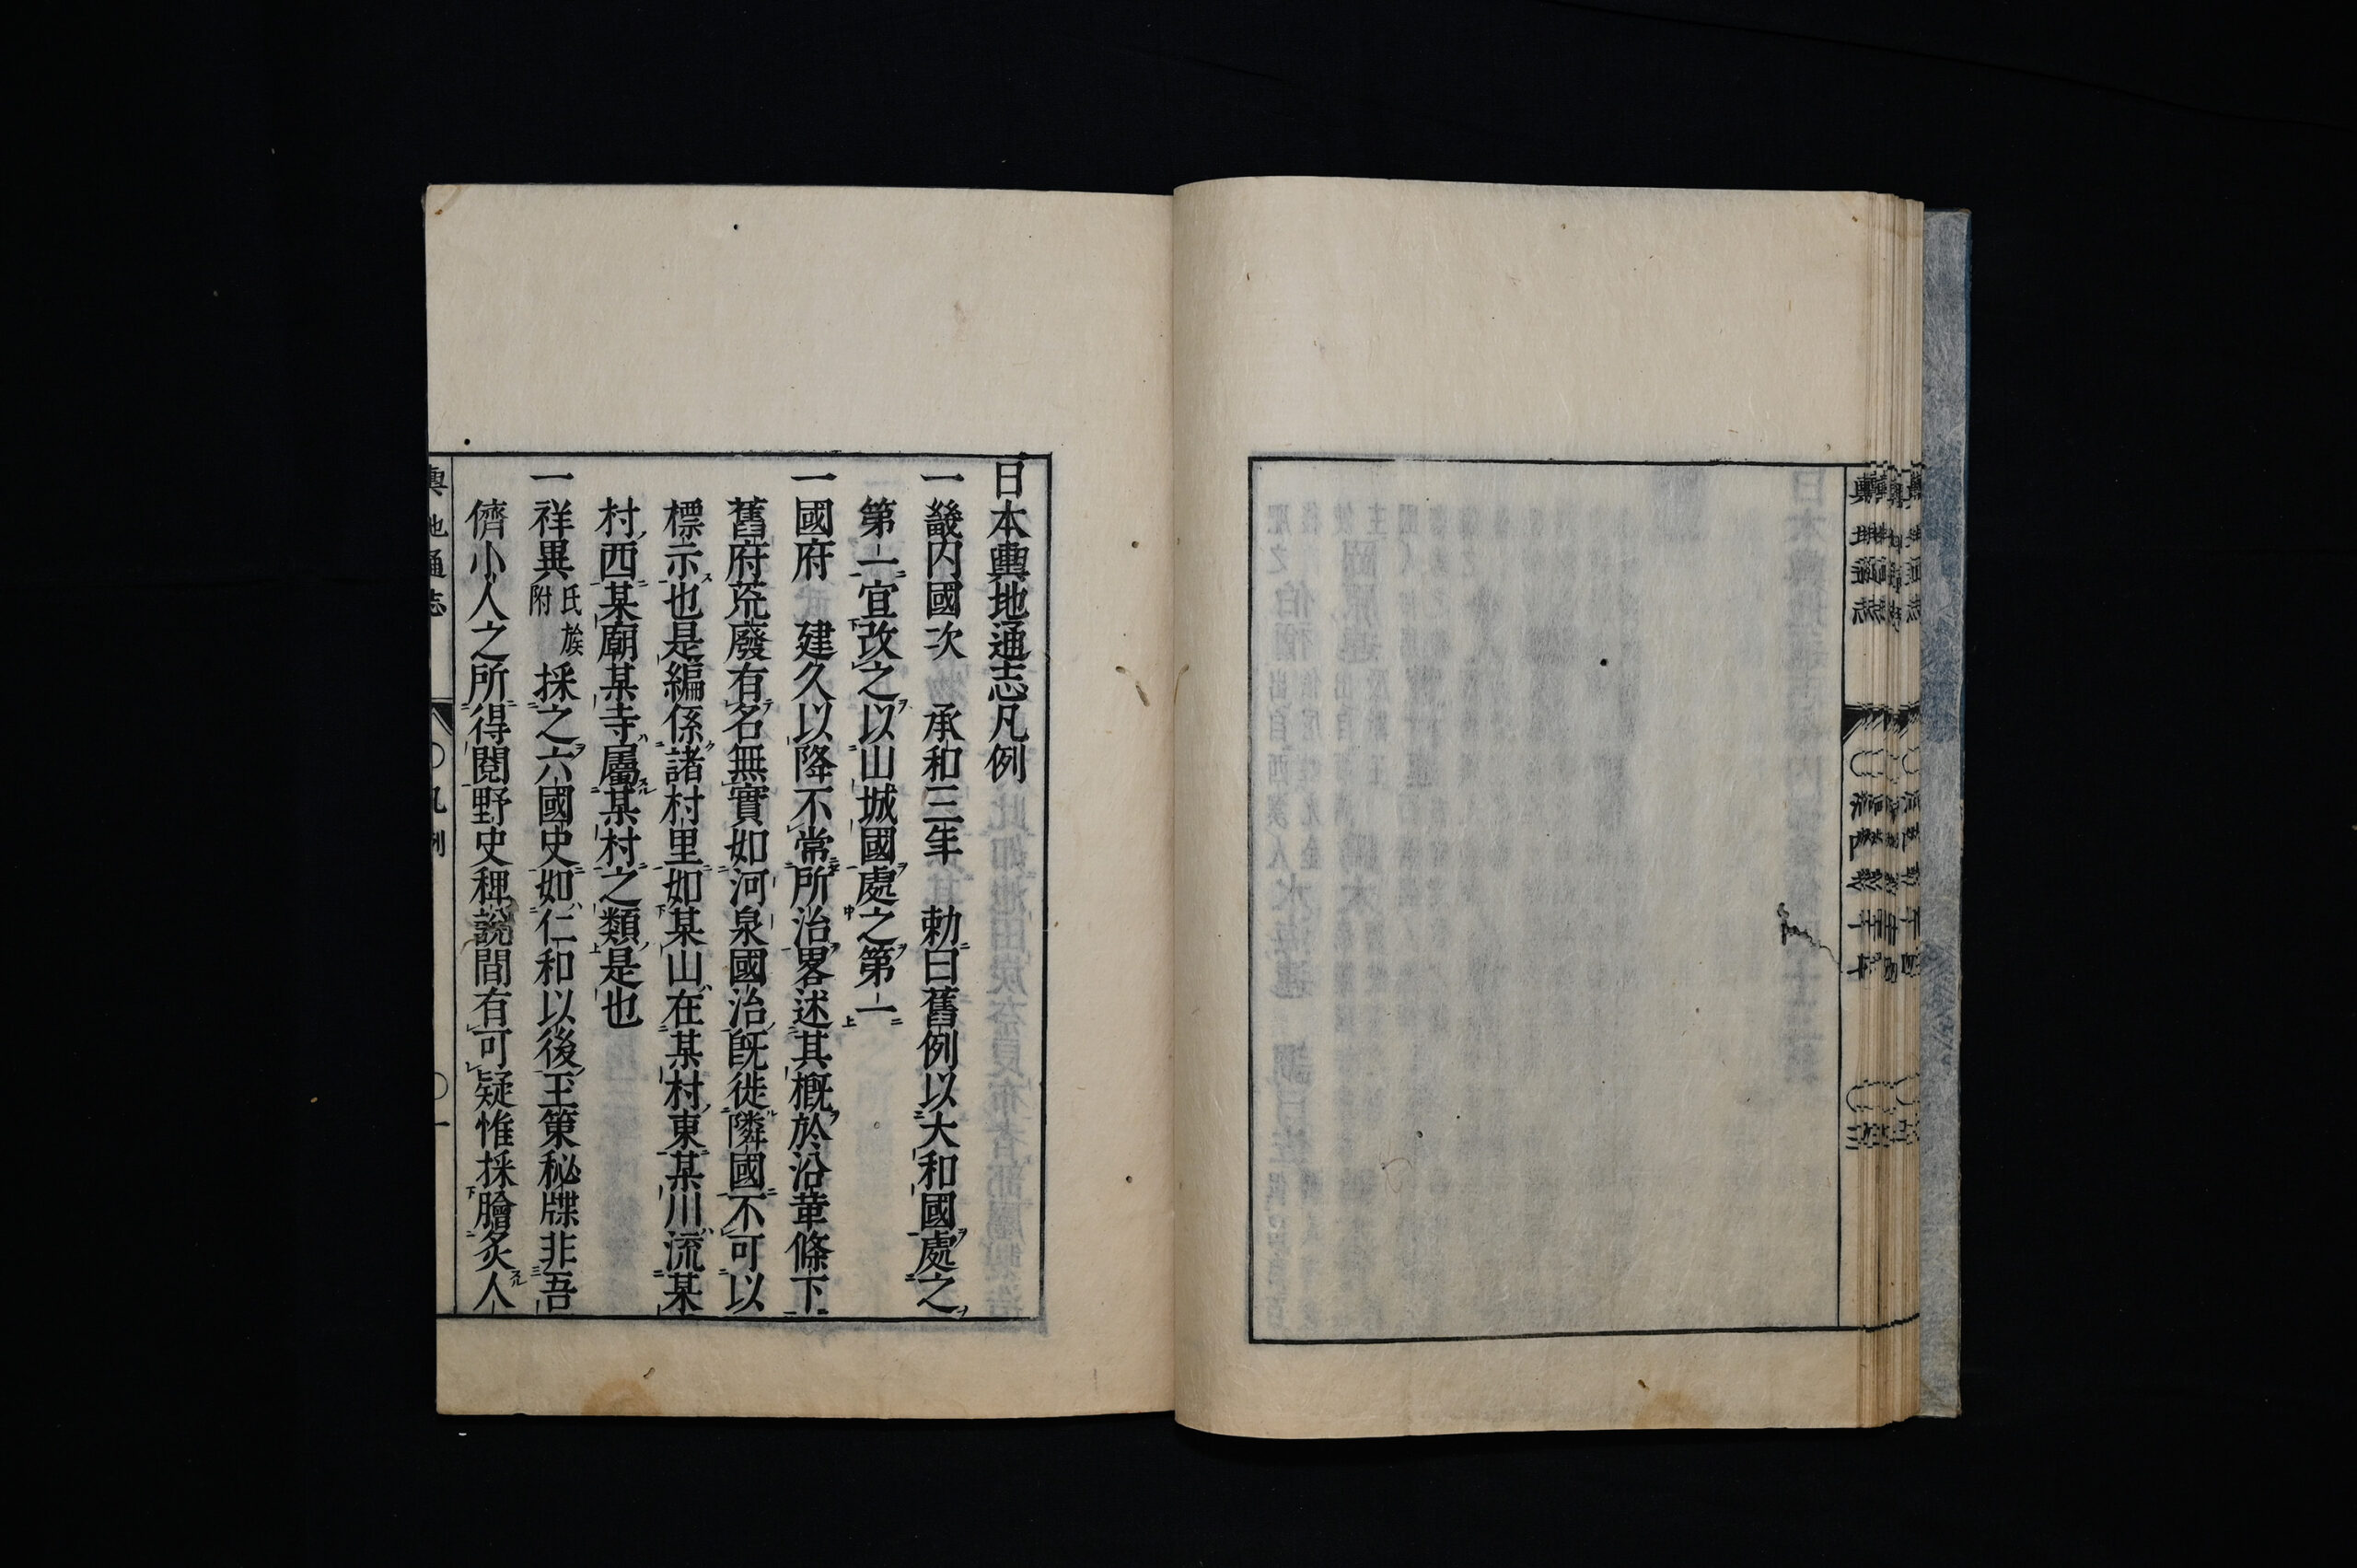 日本輿地通志凡例
一畿内國次　承和三年　勅曰舊例以大和國處之
第一宜改之以山城國處之第一
一國府　建久以降不常所治畧述其概於沿革條下
舊府荒廢有名無實如河泉國治既徙隣國不可以
標示也是編係諸村里如某山在某村東某川流某
村西某廟某寺屬某村之類是也
一祥異附氏族採之六國史如仁和以後玉策秘牒非吾
儕小人之所得閲野史稗説間有可疑惟採膾炙人
輿地通志　凡例　一